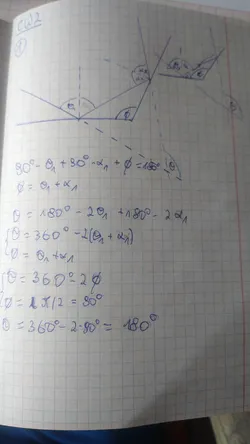 CW2
①
90° - θ₁ + 90° - α₁ + φ = 180°
φ = θ₁ + α₁
θ = 180° - 2θ₁ + 180° - 2α₁
θ = 360° - 2(θ₁ + α₁)
φ = θ₁ + α₁
θ = 360° - 2φ
φ = π/2 = 90°
θ = 360° - 2·90° = 180°